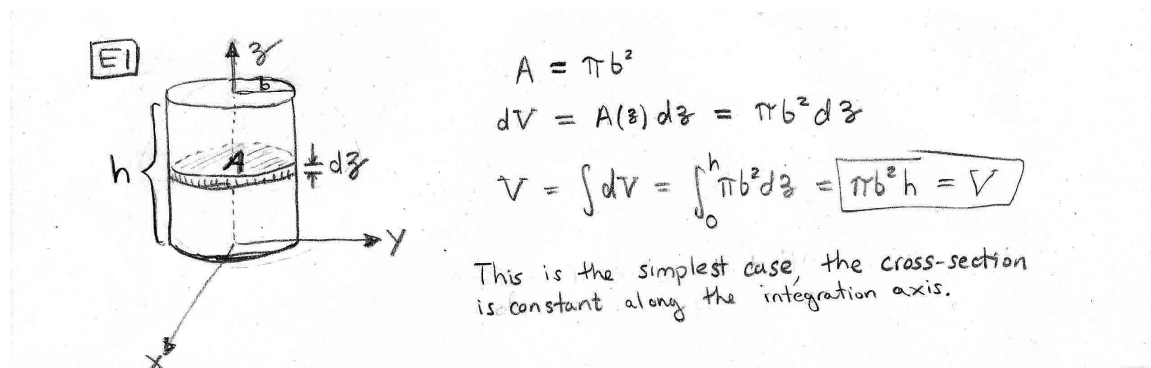 E1
z
b
h
A
dz
y
x
A = πb²
dV = A(z) dz = πb² dz
V = ∫dV = ∫₀ʰ πb²dz = πb²h = V
This is the simplest case, the cross-section
is constant along the integration axis.